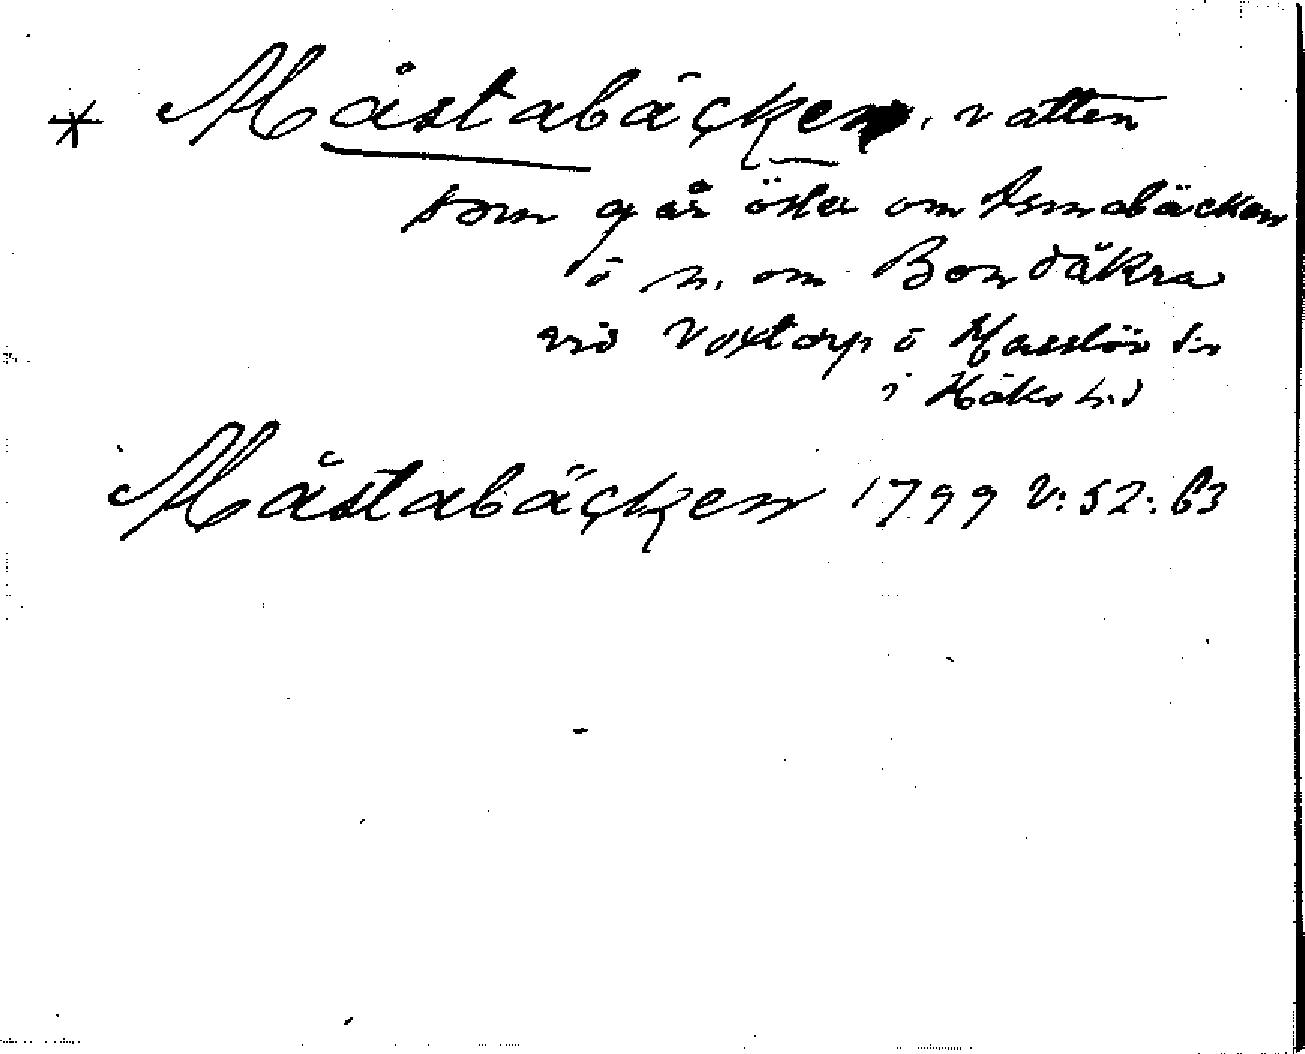 * Måstabäcken, vatten
som går öster om
ö n. om Bondåkra
vid Voxtorp i Hasslöv sn
i Höks hd
Måstabäcken 1799 V:52:63